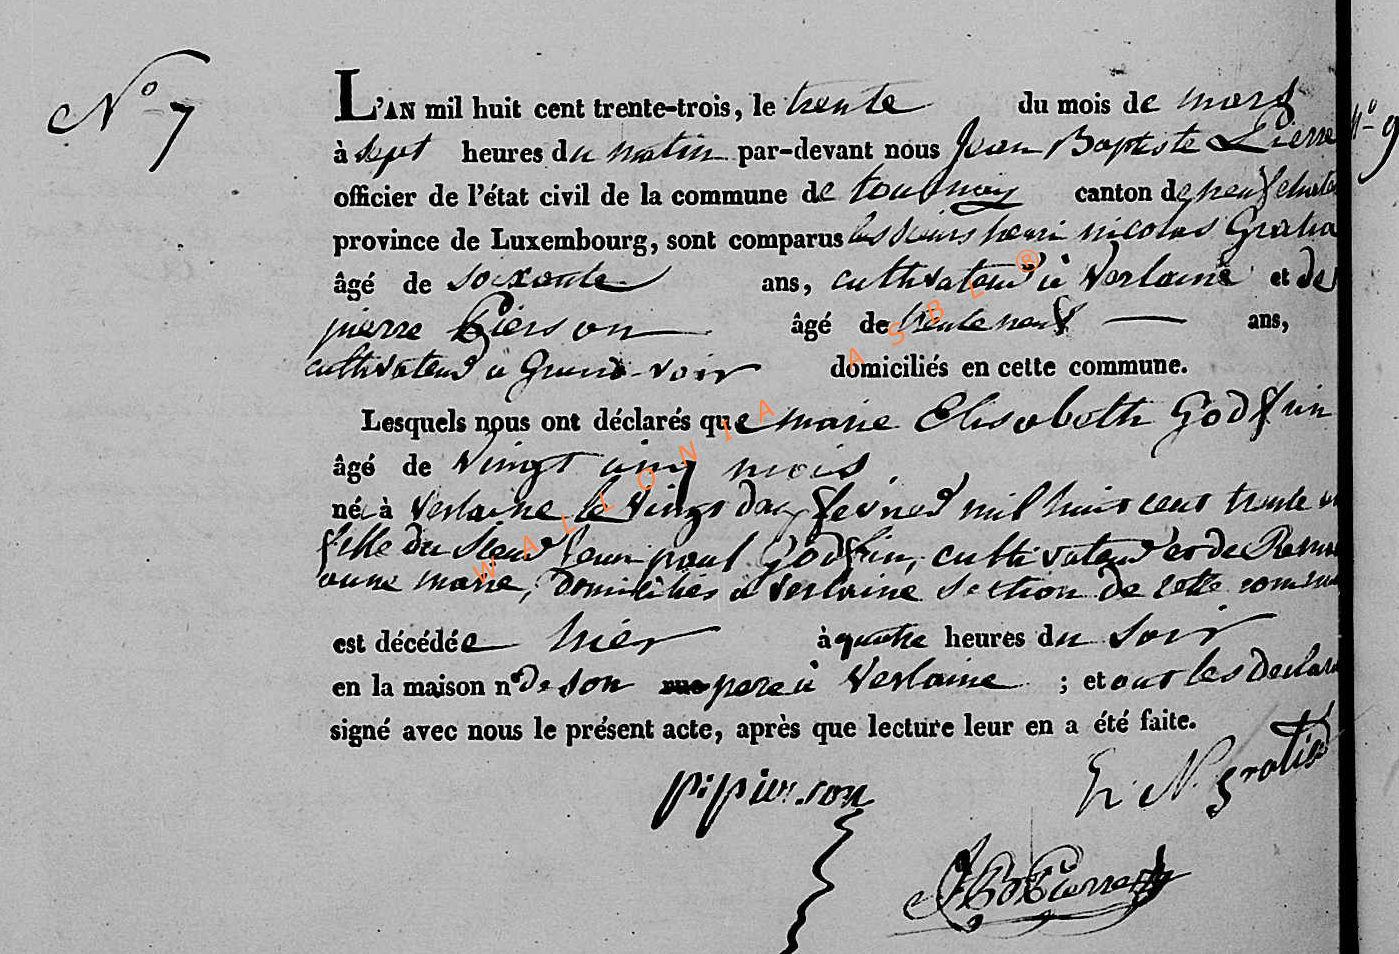 N° 7
L'AN mil huit cent trente-trois, le trente du mois de mars
à sept heures du matin par-devant nous Jean Baptiste Pierre
officier de l'état civil de la commune de tournay canton de neufchate
province de Luxembourg, sont comparus les sieurs henri nicolas Gratia
âgé de soixante ans, cultivateur à Verlaine et de
pierre Pierson âgé de trente neuf ans,
cultivateur a Grand-voir domiciliés en cette commune.
Lesquels nous ont déclarés que marie Elisabeth Godfrin
âgé de Vingt cinq mois
née à Verlaine le Vingt day fevrier mil huit cent trente
fille du Sieur Jean paul Godfrin, cultivateur et de
anne marie, domiciliés a Verlaine section de cette commu
est décédée hier à quatre heures du soir
en la maison n° de son rue pere à Verlaine ; et ont les declara
signé avec nous le présent acte, après que lecture leur en a été faite.
p: pierson
h N gratia
J B Pierre
N° 9
WALLONIA ASBL ®